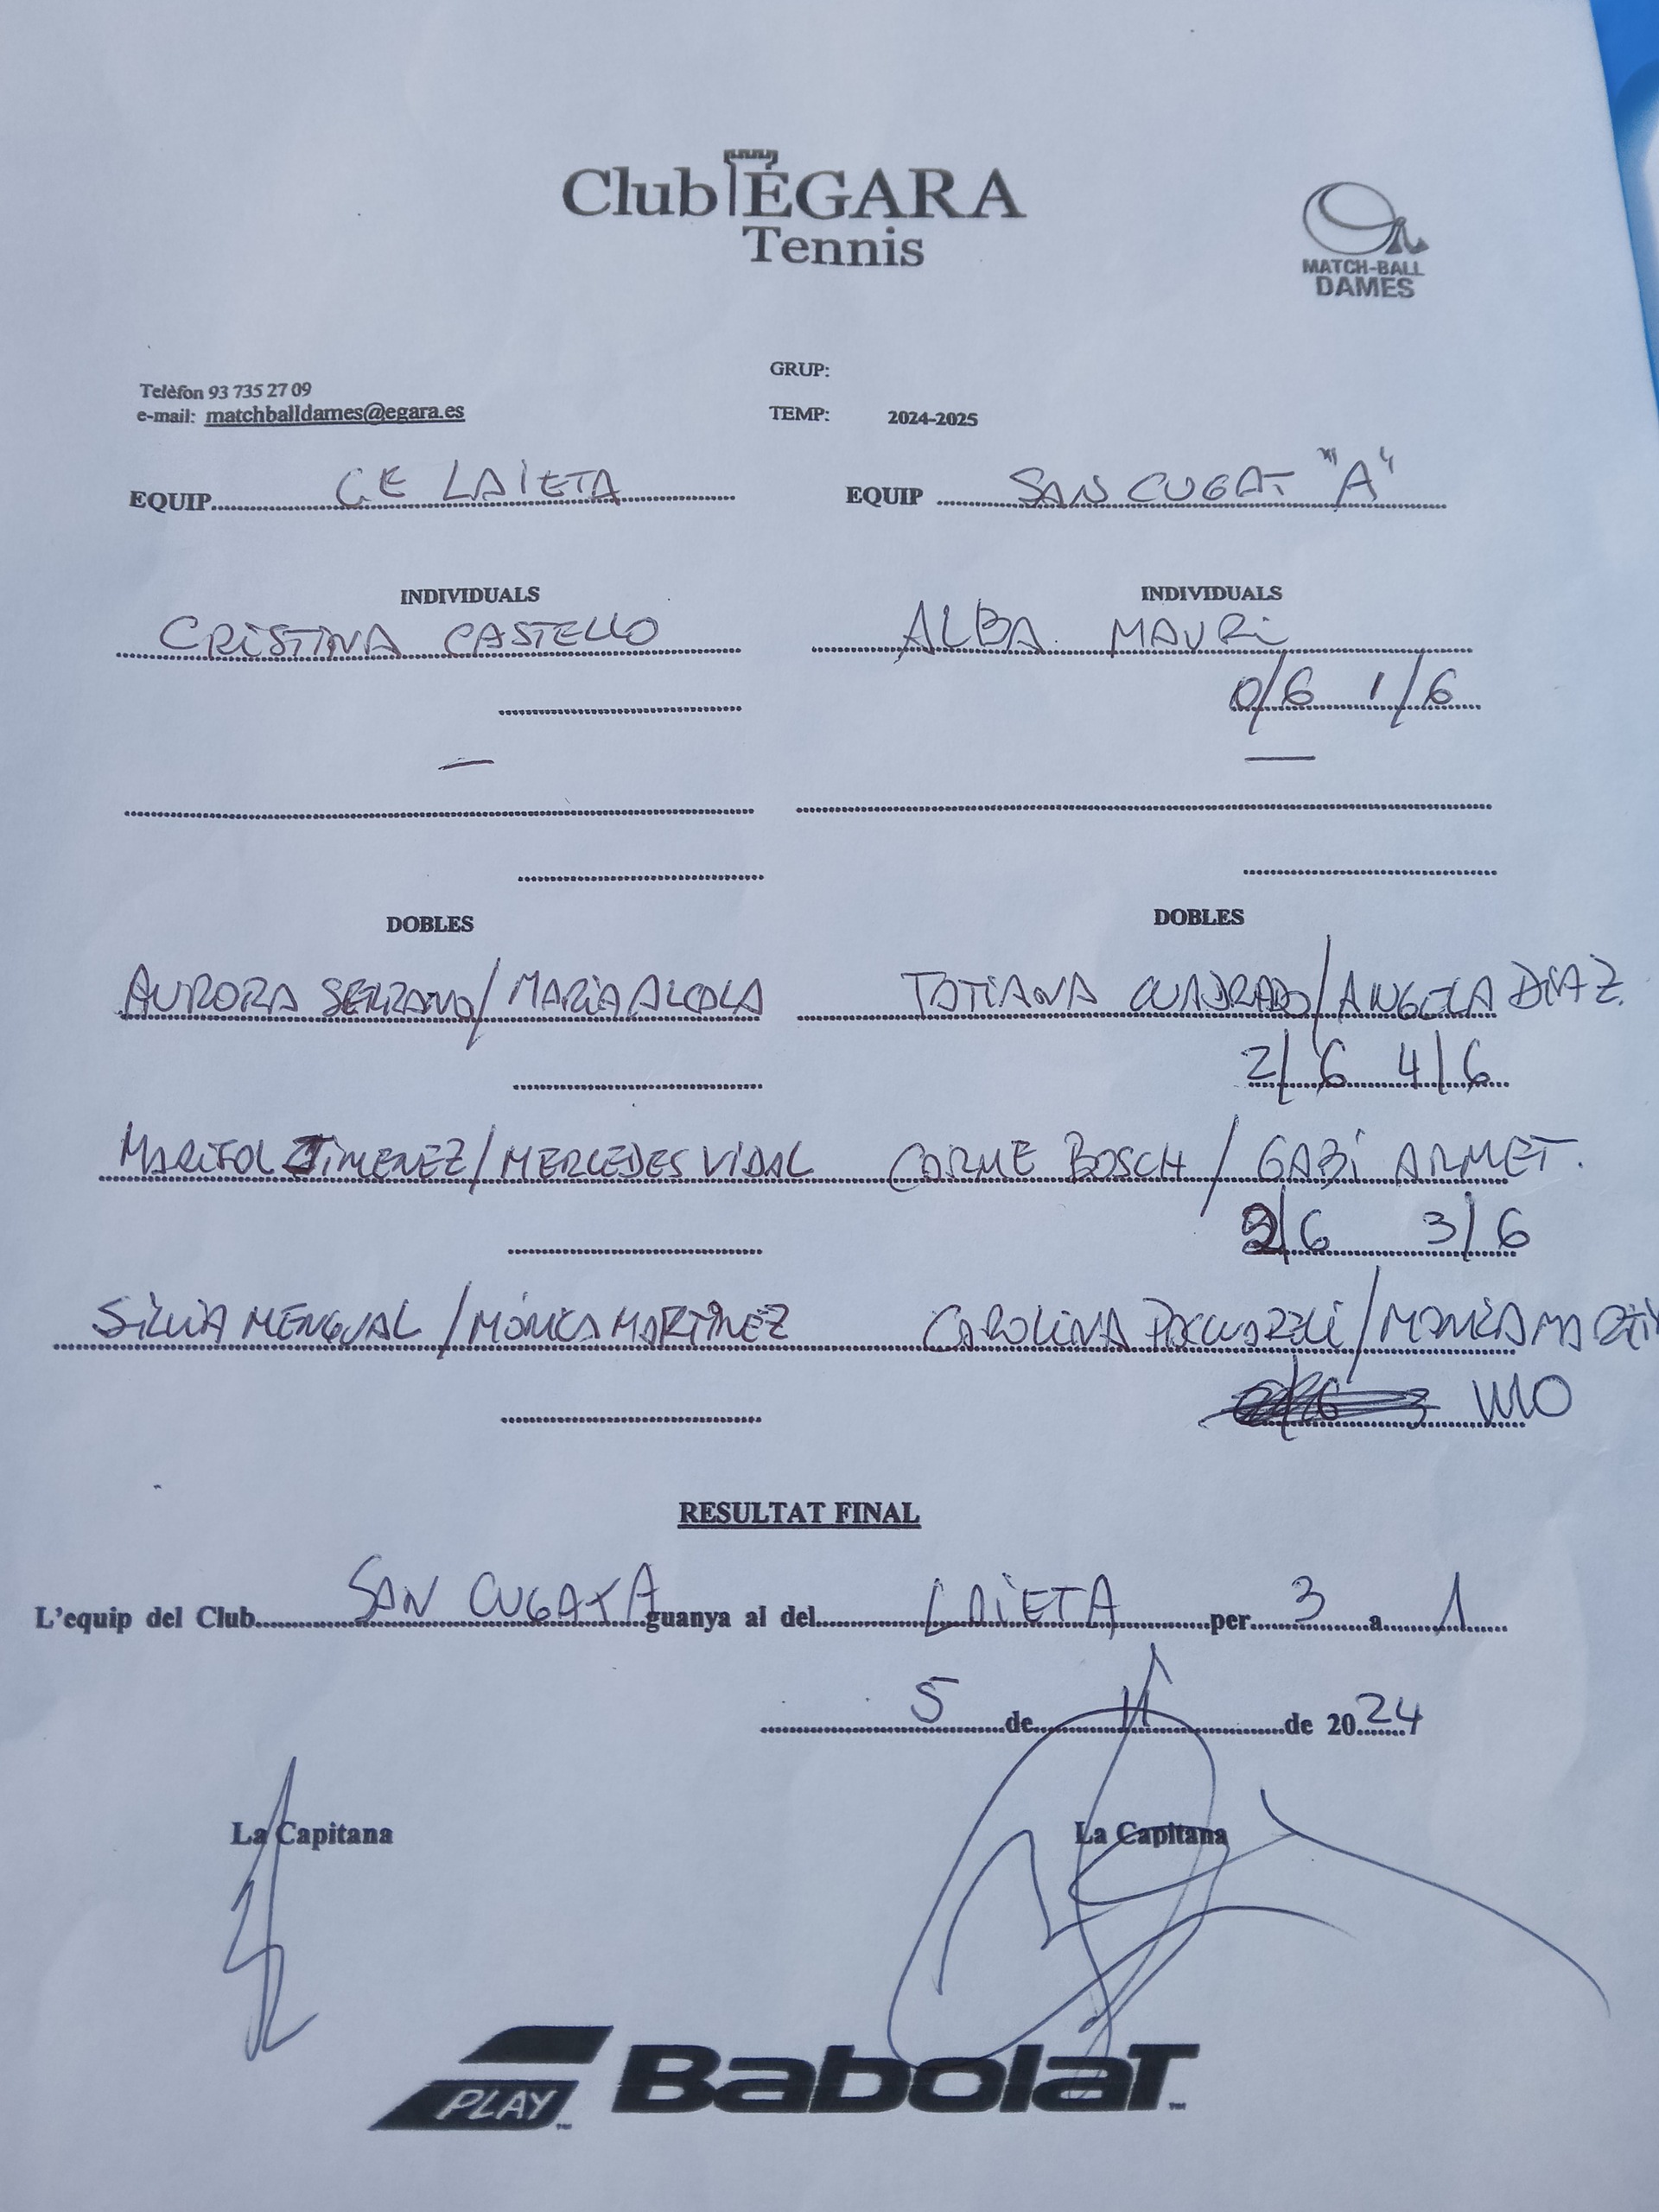 Club ÉGARA
Tennis
MATCH-BALL
DAMES
GRUP:
Telèfon 93 735 27 09
e-mail: matchballdames@egara.es
TEMP: 2024-2025
EQUIP CE LAIETA EQUIP SAN CUGAT "A"
INDIVIDUALS INDIVIDUALS
CRISTINA CASTELLO ALBA MAURI
0/6 1/6
— —
DOBLES DOBLES
AURORA SERRANO/MARIA ALCOLA TATIANA CUADRADO/ANGELA DIAZ.
2/6 4/6
MARISOL JIMENEZ/MERCEDES VIDAL CARME BOSCH / GABI ARMET.
2/6 3/6
SILVIA MENGUAL/MÓNICA MARTINEZ CAROLINA /MONICA
WO
RESULTAT FINAL
L'equip del Club SAN CUGAT A guanya al del LAIETA per 3 a 1
5 de 11 de 2024
La Capitana La Capitana
PLAY BaboLaT